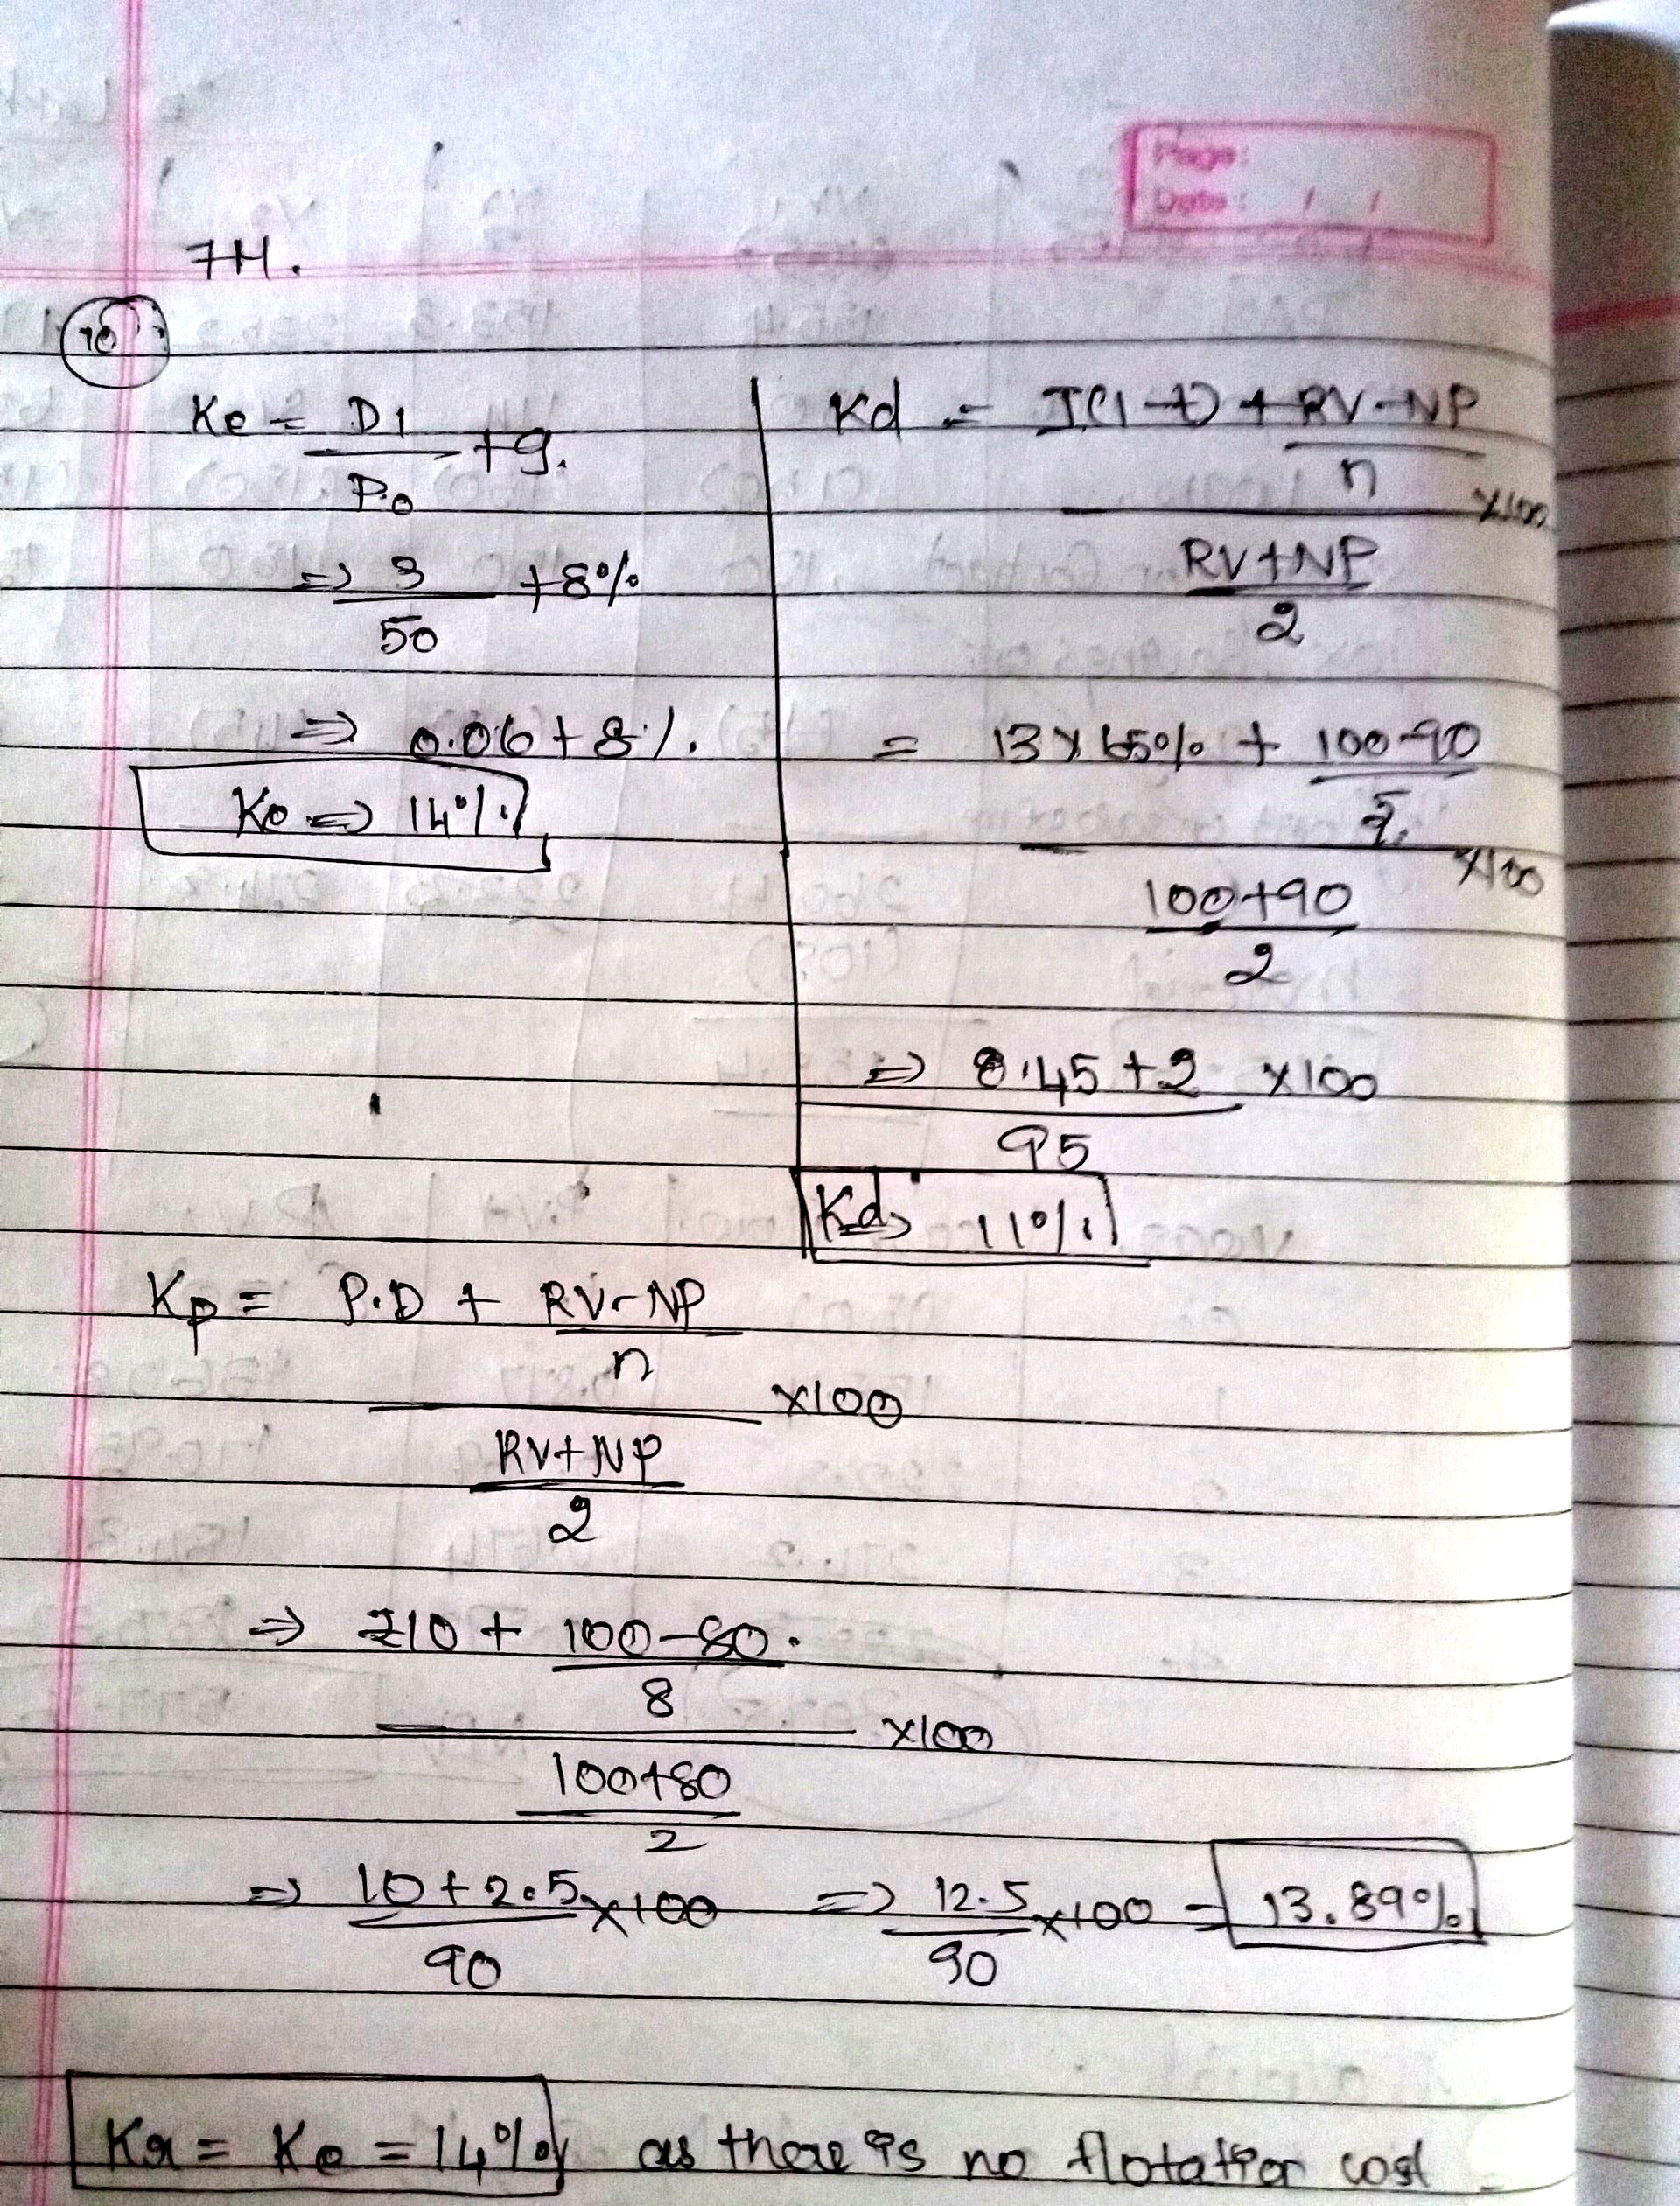 Page:
Date: / /
7M.
10
Ke = D1 / P.0 + g.
=> 3 / 50 + 8%
=> 0.06 + 8%.
Ke => 14%
Kd = I(1-t) + RV-NP / n
x100
RV+NP / 2
= 13 x 65% + 100-90 / 5
x100
100+90 / 2
=> 8.45 + 2 x100
95
Kd => 11%
Kp = P.D + RV-NP / n
x100
RV+NP / 2
=> 10 + 100-80. / 8
x100
100+80 / 2
=> 10+2.5 / 90 x100 => 12.5 / 90 x100 = 13.89%
Kr = Ke = 14% as there is no flotation cost